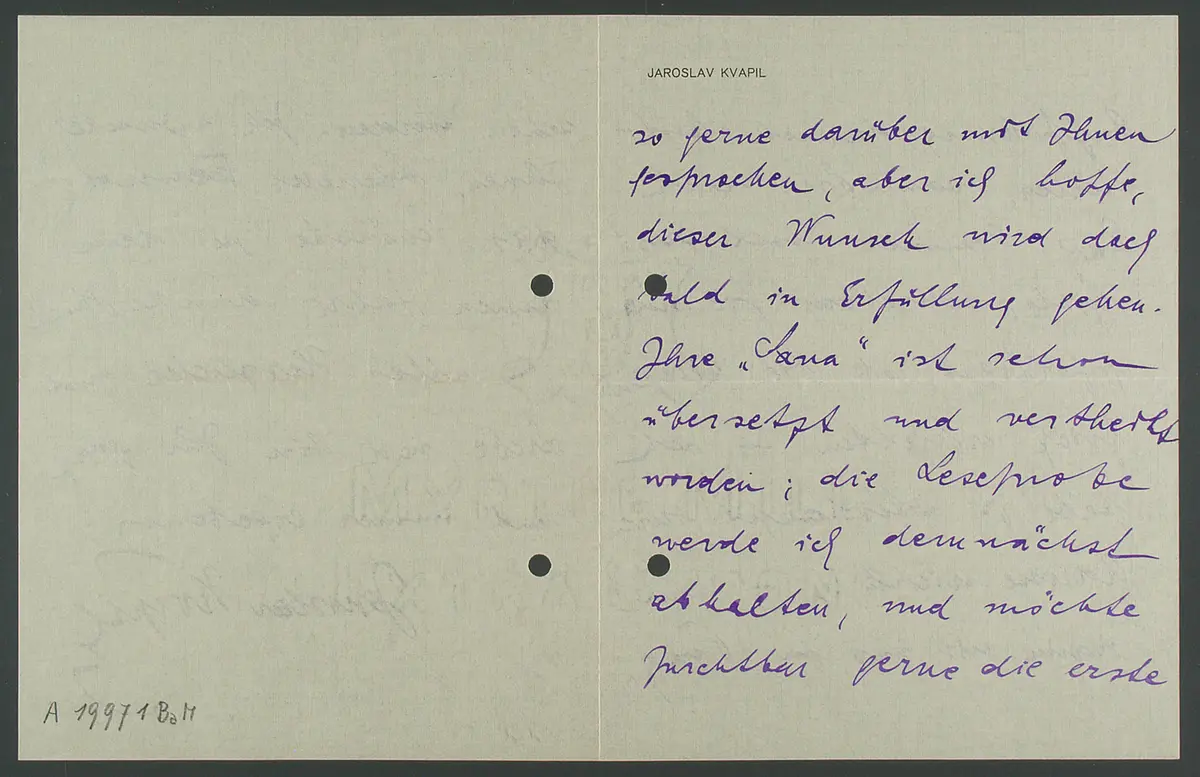 JAROSLAV KVAPIL
so gerne darüber mit Ihnen
gesprochen, aber ich hoffe,
dieser Wunsch wird doch
bald in Erfüllung gehen.
Ihre „Sanna“ ist schon
übersetzt und vertheilt
worden; die Leseprobe
werde ich demnächst
abhalten, und möchte
furchtbar gerne die erste
A 19971 BaM